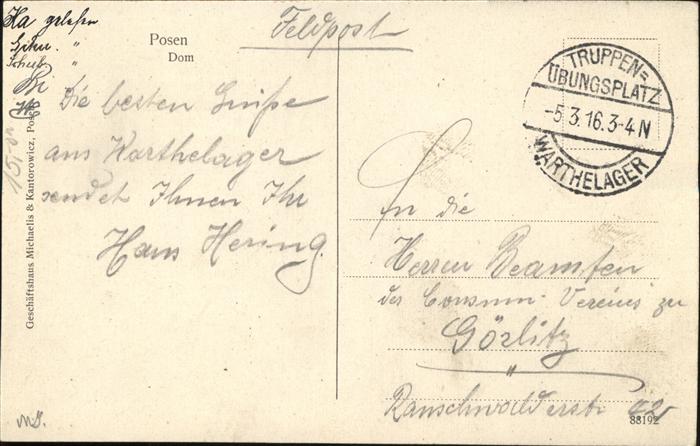 Ha gelesen
"
"
Posen
Dom
Feldpost
Die besten Grüße
aus Warthelager
sendet Ihnen Ihr
Hans Hering.
Geschäftshaus Michaelis & Kantorowicz, Posen
TRUPPEN=
ÜBUNGSPLATZ
-5.3.16.3-4N
WARTHELAGER
An die
Herren Beamten
des Consum-Vereins zu
Görlitz
Rauschwalderstr
88192